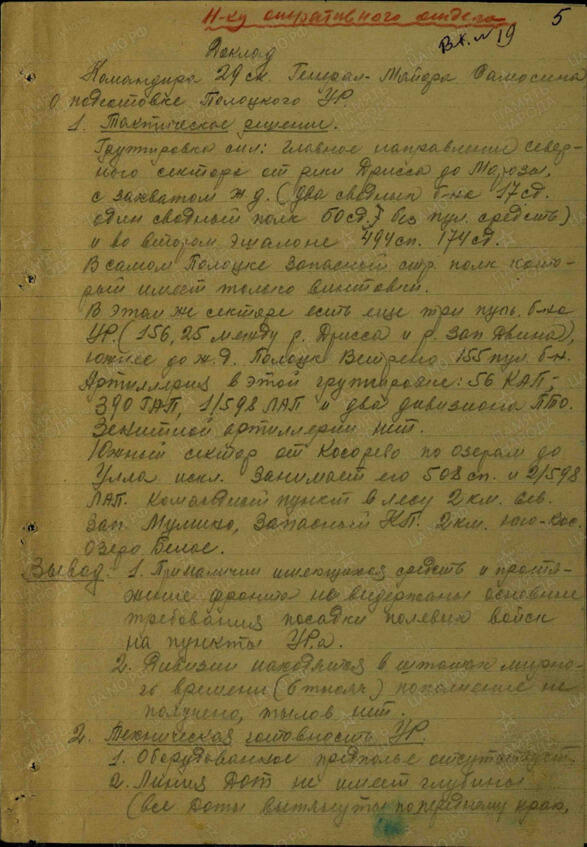 Н-ку оперативного отдела
5
Вх. № 19
Доклад
Командира 29 ск. Генерал-Майора Самосина
о подготовке Полоцкого УР
1. Тактическое решение.
Группировка сил: главное направление север-
ного сектора от реки Дрисса до Морозы,
с захватом ж.д. (два сводных б-на 17сд.
один сводный полк 50сд. без пул. средств)
и во втором эшалоне 494сп. 174сд.
В самом Полоцке запасный стр. полк кото-
рый имеет только винтовки.
В этом же секторе есть еще три пуль. б-на
УР. (156, 25 между р. Дрисса и р. Зап Двина),
южнее до ж.д. Полоцк Ветрено 155 пул. б-н.
Артиллерия в этой группировке: 56 КАП;
390 ГАП, 1/598 ЛАП и два дивизиона ПТО.
Зенитной артиллерии нет.
Южный сектор от Косарево по озерам до
Улла искл. Занимает его 508 сп. и 2/598
ЛАП. Командный пункт в лесу 2 км. сев.
зап. , Запасный КП. 2 км. юго-вос.
озеро Белое.
Вывод: 1. При наличии имеющихся средств и протя-
жение фронта не выдержаны основные
требования посадки полевых войск
на пункты УРа.
2. Дивизии находятся в штатах мирно-
го времени (6 тысяч) пополнение не
получено, тылов нет.
2. Техническая готовность УР.
1. Оборудованное предполье отсутствует.
2. Линия ДОТ не имеет глубины
(все доты вытянуты по переднему краю,
ЦАМО.РФ